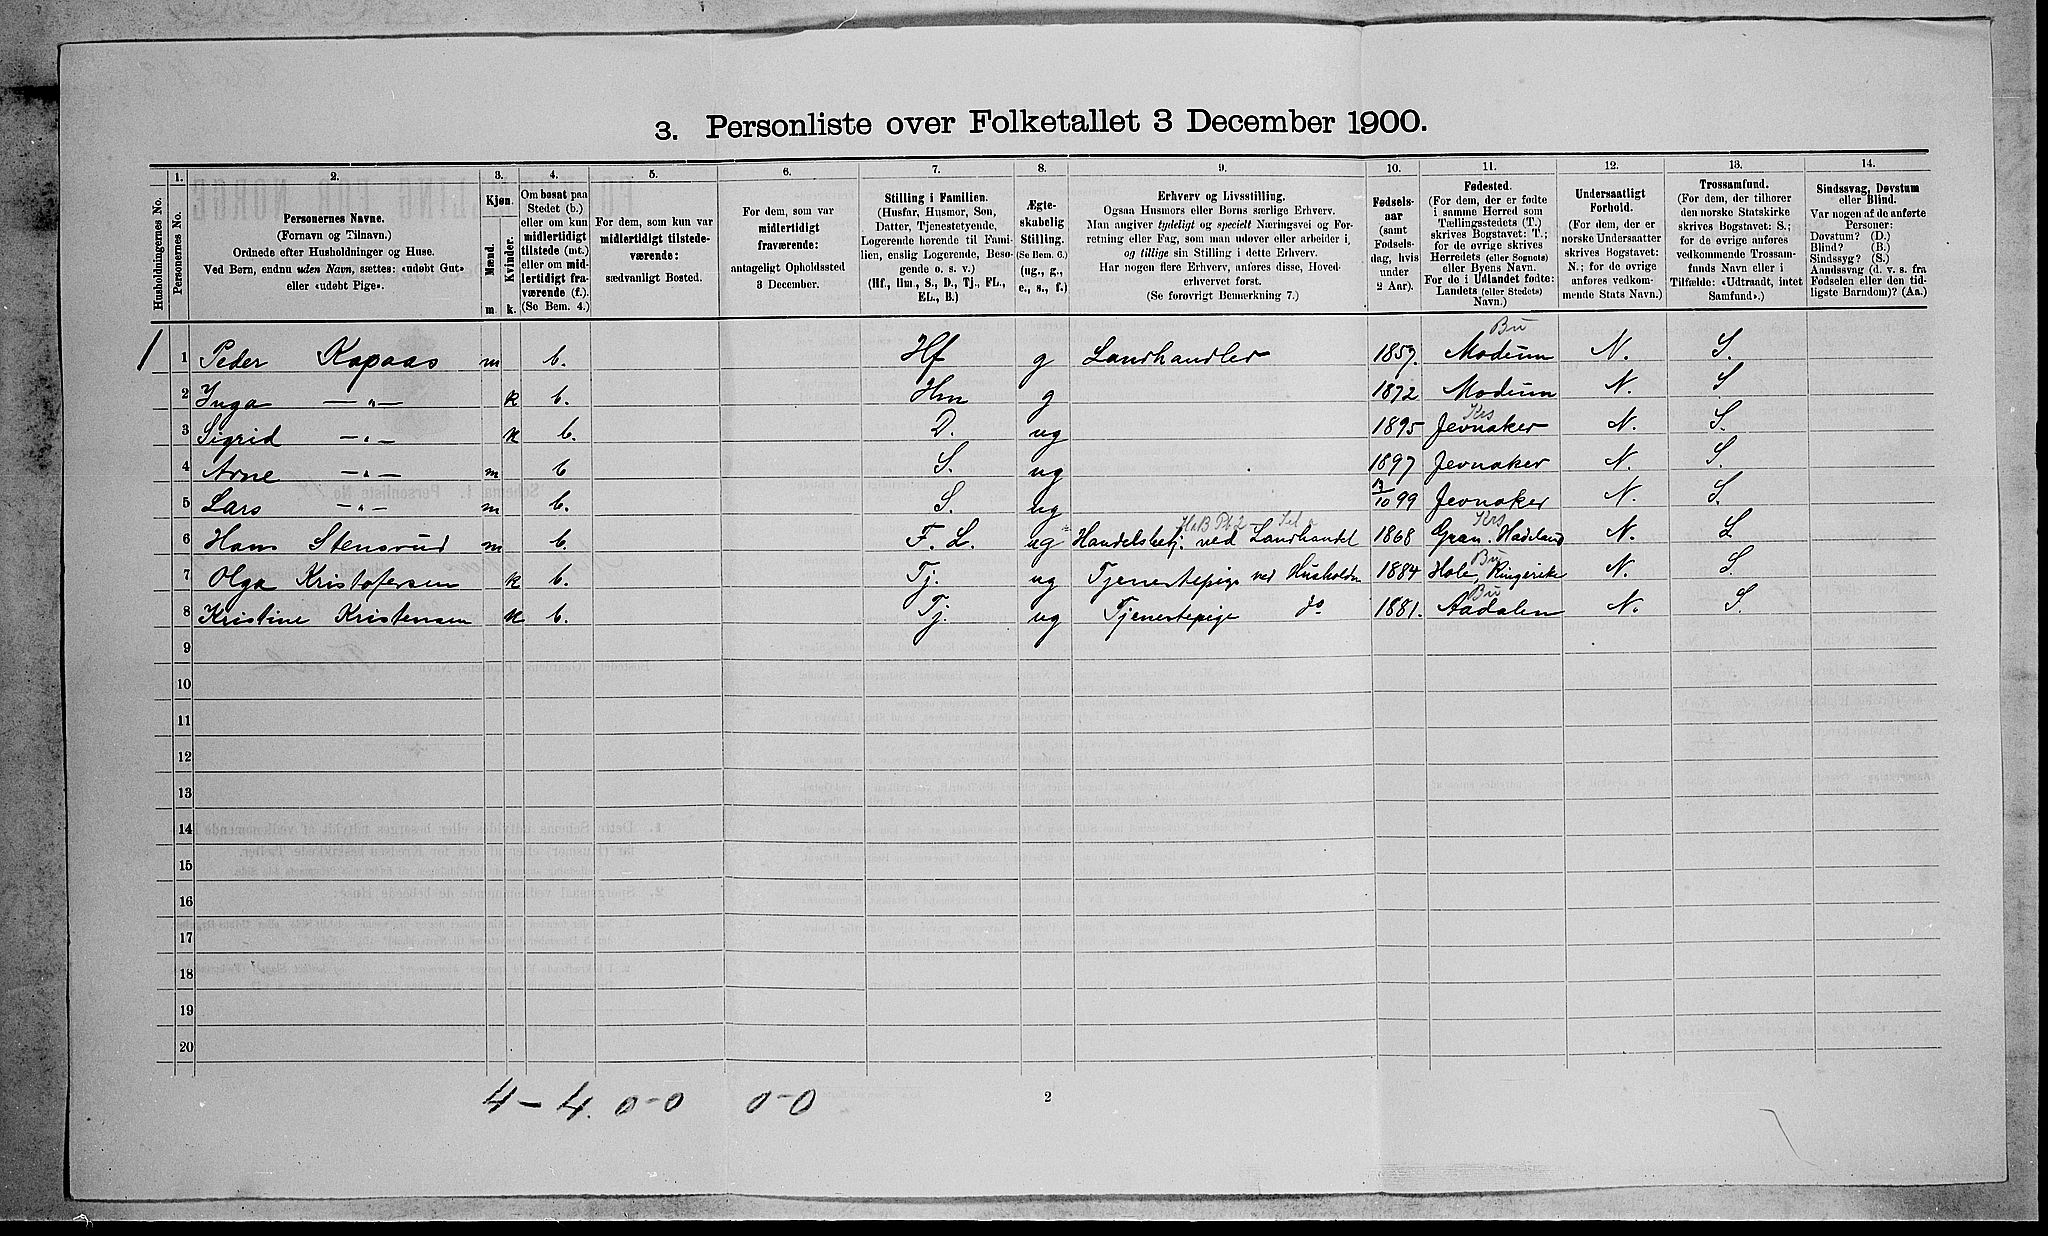 3. Personliste over Folketallet 3 December 1900.
1. 2. 3. 4. 5. 6. 7. 8. 9. 10. 11. 12. 13. 14.
Husholdningernes No.
Personernes No.
Personernes Navne.
(Fornavn og Tilnavn.)
Ordnede efter Husholdninger og Huse.
Ved Børn, endnu uden Navn, sættes: «udøbt Gut»
eller «udøbt Pige».
Kjøn.
Mænd. Kvinder.
m. k.
Om bosat paa
Stedet (b.)
eller om kun
midlertidigt
tilstede (mt.)
eller om mid-
lertidigt fra-
værende (f.)
(Se Bem. 4.)
For dem, som kun var
midlertidigt tilstede-
værende:
sædvanligt Bosted.
For dem, som var
midlertidigt
fraværende:
antageligt Opholdssted
3 December.
Stilling i Familien.
(Husfar, Husmor, Søn,
Datter, Tjenestetyende,
Logerende hørende til Fami-
lien, enslig Logerende, Besø-
gende o. s. v.)
(Hf., Hm., S., D., Tj., FL.,
EL., B.)
Ægte-
skabelig
Stilling.
(Se Bem. 6.)
(ug., g.,
e., s., f.)
Erhverv og Livsstilling.
Ogsaa Husmors eller Børns særlige Erhverv.
Man angiver tydeligt og specielt Næringsvei og For-
retning eller Fag, som man udøver eller arbeider i,
og tillige sin Stilling i dette Erhverv.
Har nogen flere Erhverv, anføres disse, Hoved-
erhvervet først.
(Se forøvrigt Bemærkning 7.)
Fødsels-
aar
(samt
Fødsels-
dag, hvis
under
2 Aar).
Fødested.
(For dem, der er fødte
i samme Herred som
Tællingsstedet (T.)
skrives Bogstavet: T.;
for de øvrige skrives
Herredets (eller Sognets)
eller Byens Navn.
For de i Udlandet fødte:
Landets (eller Stedets)
Navn.)
Undersaatligt
Forhold.
(For dem, der er
norske Undersaatter
skrives Bogstavet:
N.; for de øvrige
anføres vedkom-
mende Stats Navn.)
Trossamfund.
(For dem, der tilhører
den norske Statskirke
skrives Bogstavet: S.;
for de øvrige anføres
vedkommende Trossam-
funds Navn eller i
Tilfælde: «Udtraadt, intet
Samfund».)
Sindssvag, Døvstum
eller Blind.
Var nogen af de anførte
Personer:
Døvstum? (D.)
Blind? (B.)
Sindssyg? (S.)
Aandssvag (d. v. s. fra
Fødselen eller den tid-
ligste Barndom)? (Aa.)
Bu
1 1 Peder Kopaas m b. Hf g Landhandler 1857. Modum N. S.
2 Inga —„— k b. Hm g 1872 Modum N. S
Krs
3 Sigrid —„— k b. D. ug 1895 Jevnaker N. S.
4 Arne —„— m b S. ug 1897 Jevnaker N. S.
5 Lars —„— m b. S. ug 10 99 Jevnaker N. S.
Krs
6 Hans Stensrud m b. F. L. ug Handelsbetj. ved Landhandel 1868 Gran. Hadeland N. S
Bu
7 Olga Kristofersen k b. Tj. ug Tjenestepige ved Husholdn 1884 Hole, Ringerike N. S.
Bu
8 Kristine Kristensen k b. Tj. ug Tjenestepige do 1881. Aadalen N. S.
9
10
11
12
13
14
15
16
17
18
19
20
4 – 4. 0-0 0-0
2